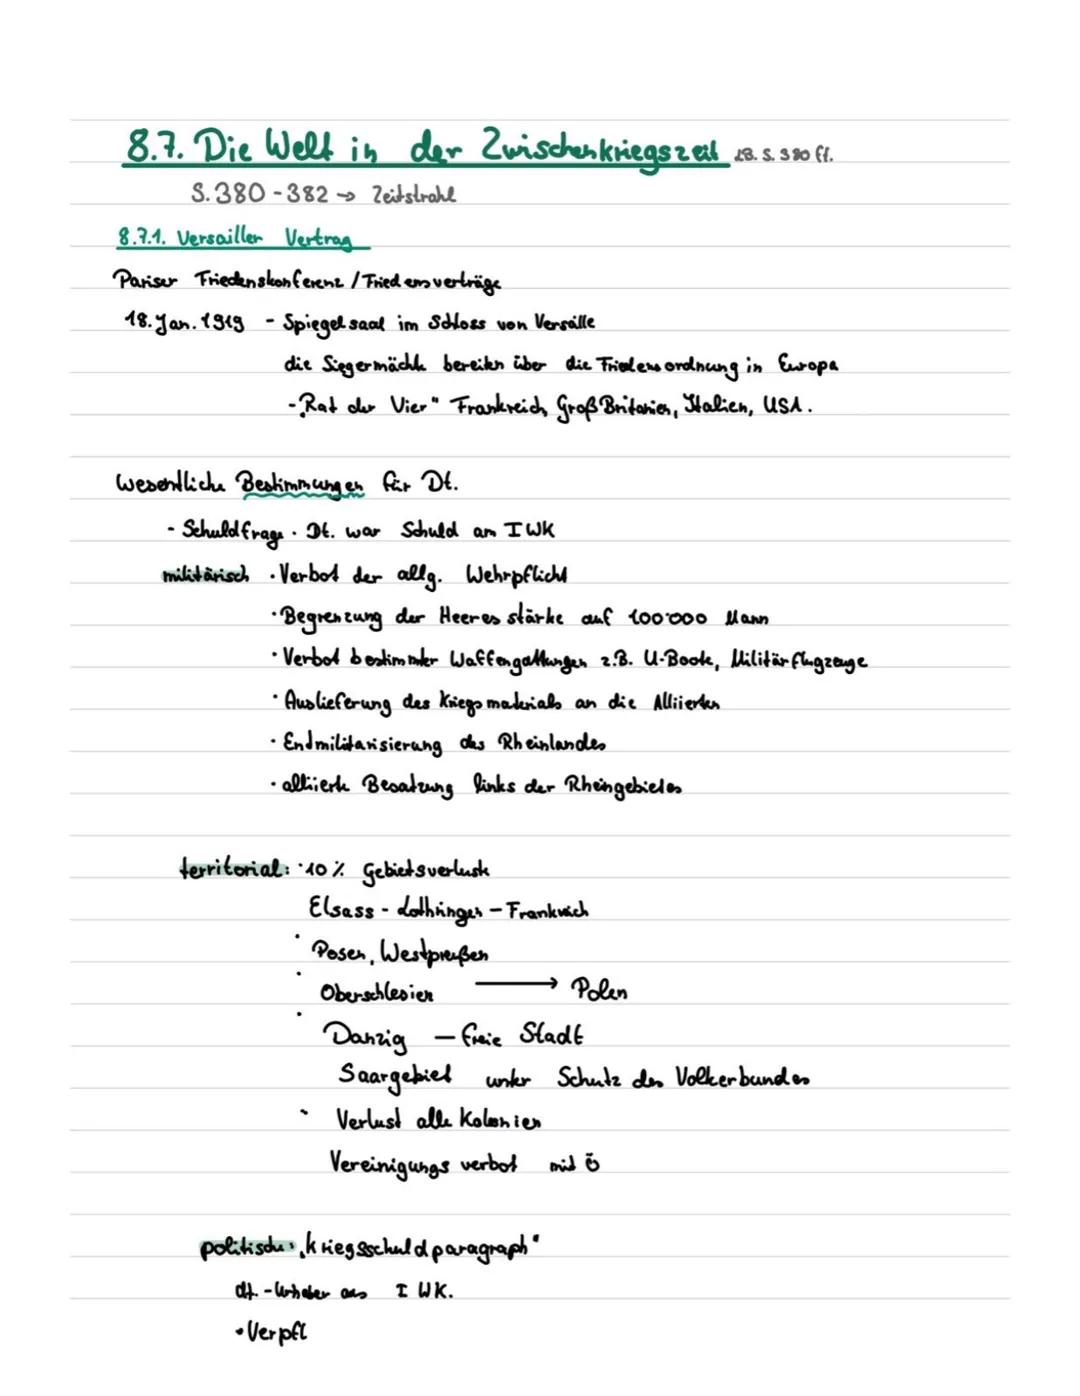 8.7. Die Welt in der Zwischenkriegszeit LB. S. 380 ff.
S. 380 - 382 → Zeitstrahl
8.7.1. Versailler Vertrag
Pariser Friedenskonferenz / Friedensverträge
18. Jan. 1919 - Spiegelsaal im Schloss von Versaille
die Siegermächte bereiten über die Friedensordnung in Europa
- „Rat der Vier" Frankreich, Groß Britanien, Italien, USA.
Wesentliche Bestimmungen für Dt.
- Schuldfrage · Dt. war Schuld am I WK
militärisch · Verbot der allg. Wehrpflicht
· Begrenzung der Heeresstärke auf 100'000 Mann
· Verbot bestimmter Waffengattungen z.B. U-Boote, Militärflugzeuge
· Auslieferung des Kriegsmaterials an die Alliierten
· Endmilitarisierung des Rheinlandes
· alliierte Besatzung links der Rheingebietes
territorial: · 10 % Gebietsverluste
Elsass - Lothringen - Frankreich
· Posen, Westpreußen
· Oberschlesien → Polen
· Danzig - freie Stadt
Saargebiet unter Schutz des Volkerbundes
· Verlust alle Kolonien
Vereinigungs verbot mit Ö
politische: „Kriegsschuldparagraph"
dt. - Urheber des I WK.
• Verpfl